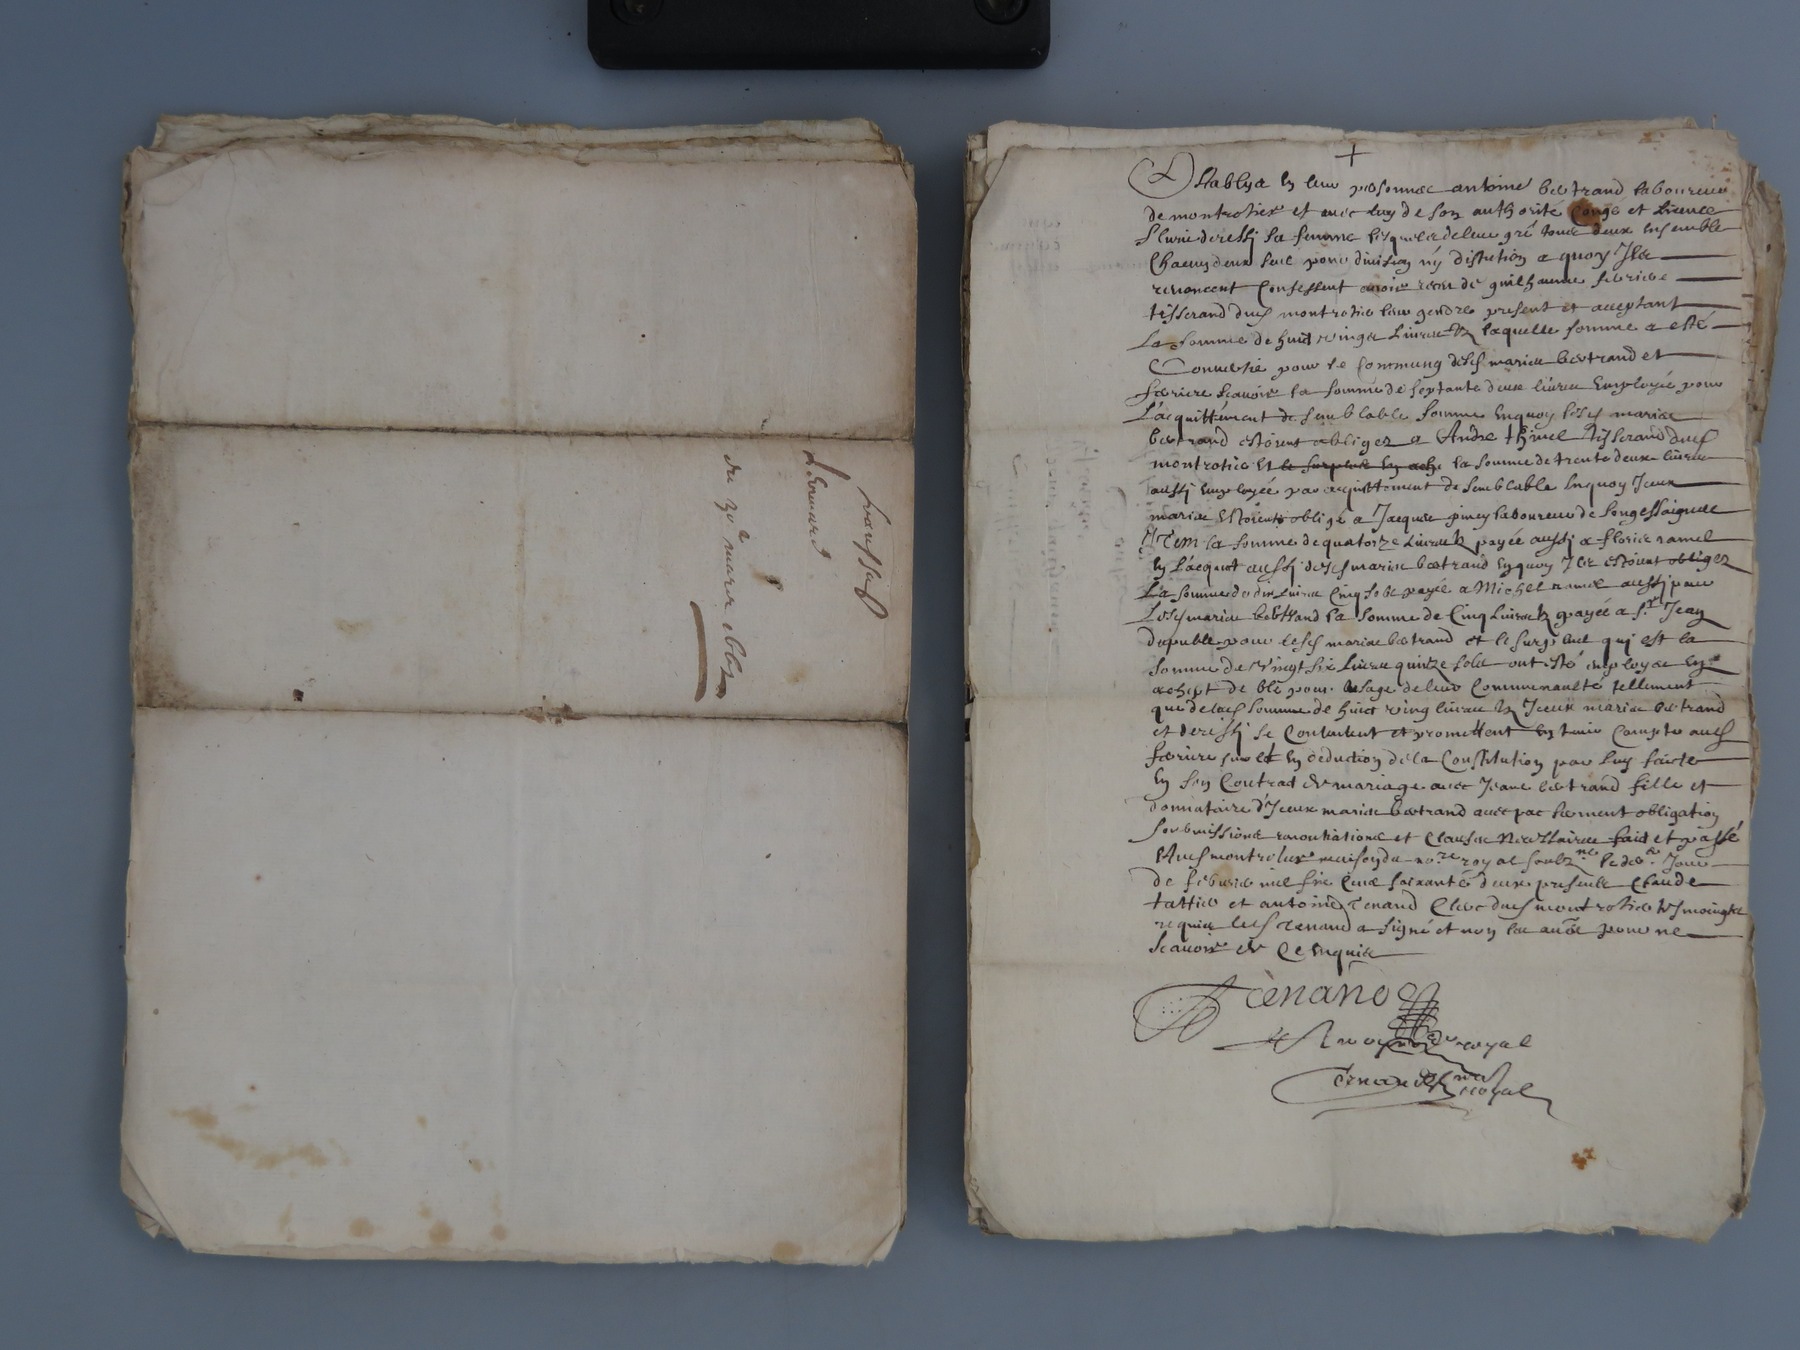 Lieuvared
du 30e mars
Establye en leur personne antoine bertrand laboureur
de montrotier et avec luy de son authorité congé et licence
sa femme lesquels de leur gré tous deux ensemble
chacung deux seul pour division ny distution a quoy Ils
renoncent confessent avoir receu de guilhaume
tisserand dud montrotier leur gendre present et acceptant
La somme de huict vingt Livres tz laquelle somme a esté
Convertie pour le commung desd mariez bertrand et
feriere scauoir la somme de septante deux livres Employée pour
L'acquittement de semblable somme enquoy lesd mariez
bertrand estoient obligez a Andre thimel tisserand dud
montrotier et la somme de trente deux livres
aussy employée par acquittement de semblable enquoy Iceux
mariez estoient obligé a Jacques piney laboureur de longessaigne
Item la somme de quatorze Livres tz payée aussy a florie ramel
en l'acquot aussy desd mariez bertrand enquoy Ilz estoient obligez
La somme de dix Livres Cinq solz payée a Michel ramel aussy pour
Lesd mariez bertrand la somme de Cinq Livres tz payée a sr Jean
pour lesd mariez bertrand et le surplus qui est la
somme de vingt six Livres quinze solz ont esté employez en
achept de blé pour usage de leur Communaulté tellement
que de lad somme de huict vingt livres tz Iceux mariez bertrand
et se Contentent et promettent en tenir Compte aud
feriere sur et en deduction de la Constitution par luy faicte
en son Contract de mariage avec Jeane bertrand fille et
donnataire d'Iceux mariez bertrand avec par serment obligation
soubmissions renontiations et Clauses Necessaires faict et passé
Aud montrotier maison du nore royal soubzne le Jour
de febvrier mil six Cens soixante deux presents Claude
et antoine Tenand Clerc dud montrotier tesmoingtz
requis led Tenand a signé et non les autres pour ne
scavoir de Ce enquis
Tenand
royal
Tenand
royal